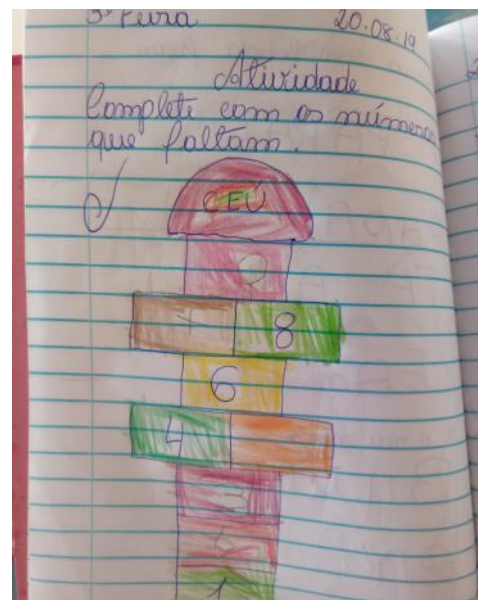 3ª Feira 20.08.19
Atividade
Complete com os números
que faltam.
CÉU
7 8
6
4
3
1